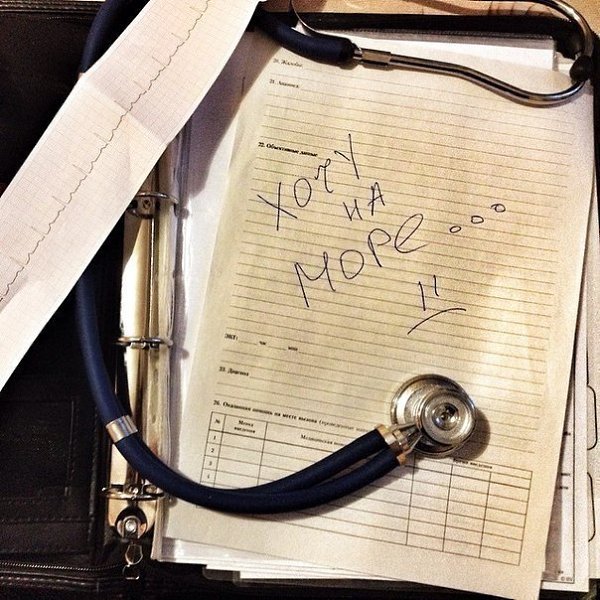 20. Жалобы
21. Анамнез
22. Объективные данные
ХОЧУ
НА
МОРЕ...
ЭКГ: час мин
23. Диагноз
26. Оказанная помощь на месте вызова (проведенные
№ Метод введения
введения
1
2
3
4
5